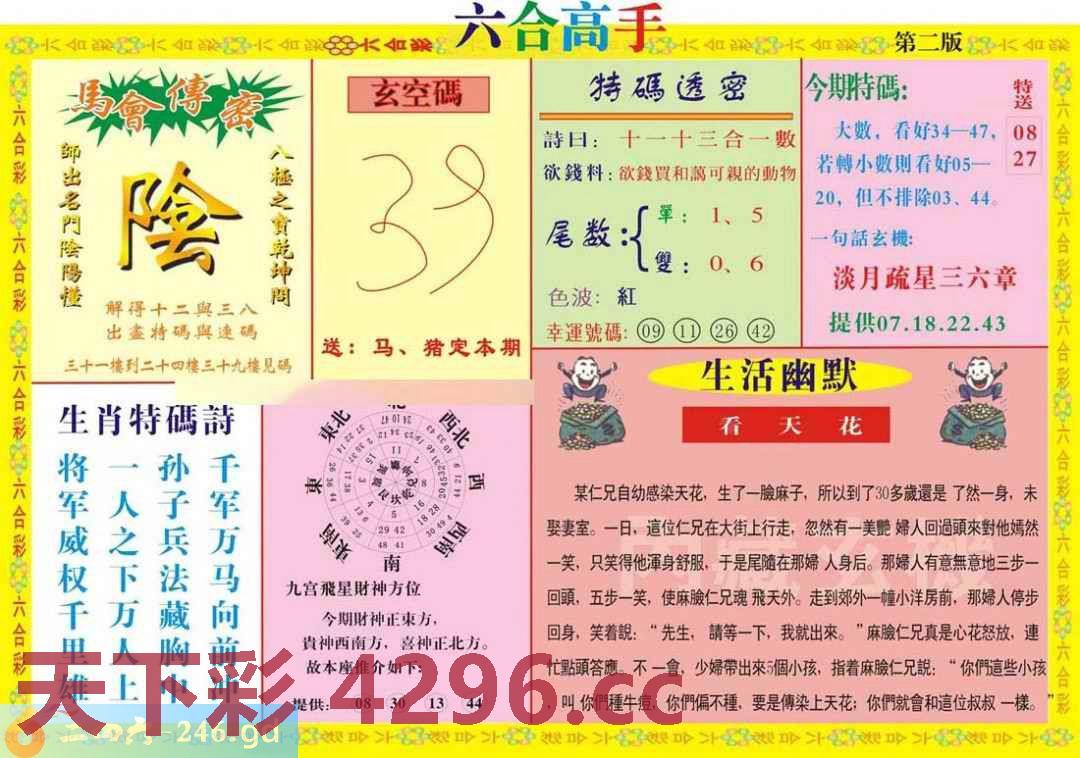 六合高手
第二版
馬會傳密
八極之寶乾坤問
陰
師出名門陰陽懂
解得十二與三八
出盡特碼與連碼
三十一樓到二十四樓三十九樓見碼
玄空碼
送：马、猪定本期
特碼透密
詩曰：十一十三合一數
欲錢料：欲錢買和藹可親的動物
尾数：
單：1、5
雙：0、6
色波：紅
幸運號碼：09 11 26 42
今期特碼：
特送
08
27
大數，看好34—47，
若轉小數則看好05—
20，但不排除03、44。
一句話玄機：
淡月疏星三六章
提供07.18.22.43
生肖特碼詩
千军万马向前冲
孙子兵法藏胸中
一人之下万人上
将军威权千里雄
北
西北
西
西南
南
東南
東
東北
九宫飛星財神方位
今期財神正東方，
貴神西南方，喜神正北方。
故本座推介如下：
提供：08 30 13 44
生活幽默
看天花
某仁兄自幼感染天花，生了一臉麻子，所以到了30多歲還是 了然一身，未
娶妻室。一日，這位仁兄在大街上行走，忽然有一美艷 婦人回過頭來對他嫣然
一笑，只笑得他渾身舒服，于是尾隨在那婦 人身后。那婦人有意無意地三步一
回頭，五步一笑，使麻臉仁兄魂 飛天外。走到郊外一幢小洋房前，那婦人停步
回身，笑着說：“先生，請等一下，我就出來。”麻臉仁兄真是心花怒放，連
忙點頭答應。不 一會，少婦帶出來5個小孩，指着麻臉仁兄說：“你們這些小孩
，叫 你們種牛痘，你們偏不種，要是傳染上天花；你們就會和這位叔叔 一樣。”
天下彩 4296.cc
246.gd